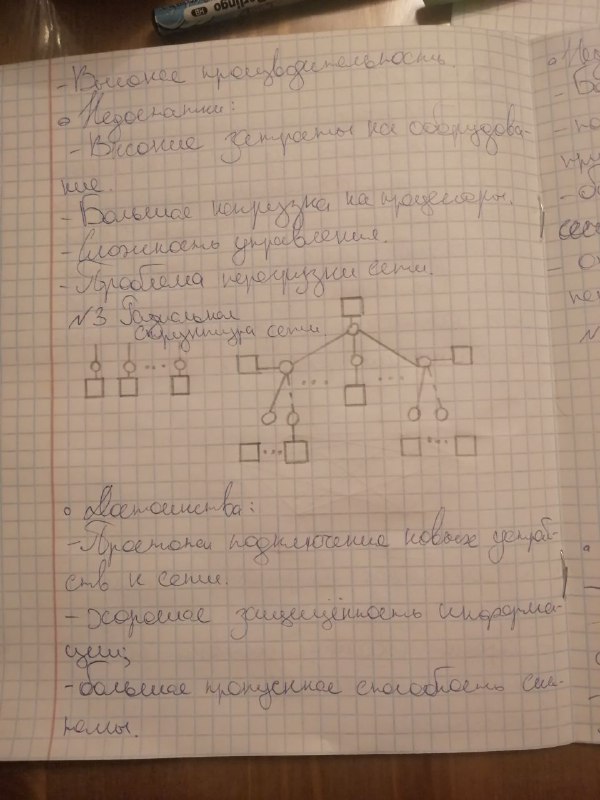 Berlingo
- Высокая производительность.
• Недостатки:
- Высокие затраты на оборудова-
ние.
- Большая нагрузка на процессоры.
- Сложность управления.
- Проблема перегрузки сети.
№3 Радиальная
структура сети.
• Достоинства:
- Простота подключение новых устрой-
ств к сети.
- хорошая защищённость информа-
ции;
- большая пропускная способность сис-
темы.